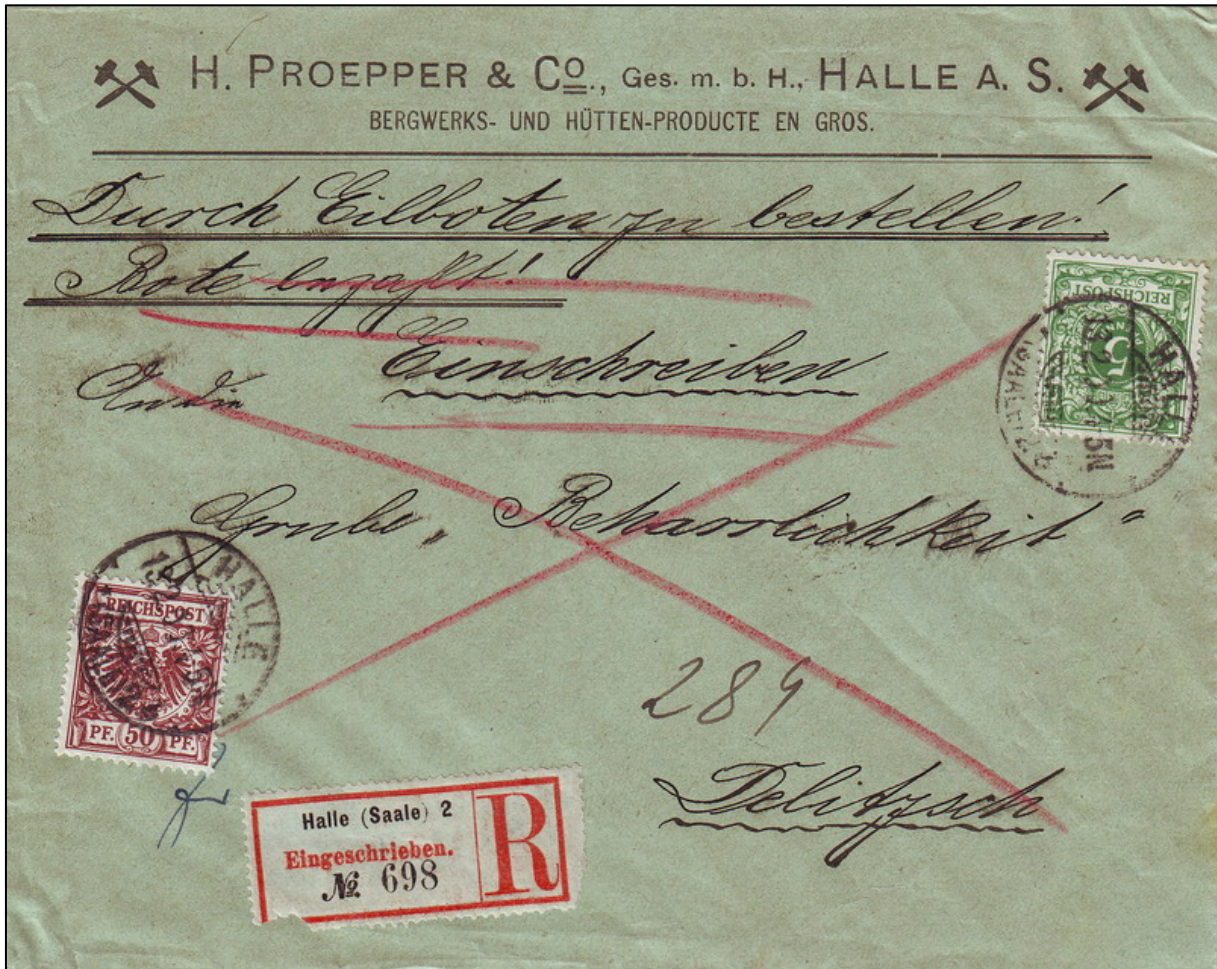 H. PROEPPER & Co., Ges. m. b. H., HALLE A. S.
BERGWERKS- UND HÜTTEN-PRODUCTE EN GROS.
Durch Eilboten zu bestellen!
Bote bezahlt!
Einschreiben
An die
Grube „Beharrlichkeit“
284
Delitzsch
REICHSPOST
5
HALLE
(SAALE)
REICHSPOST
PF. 50 PF.
HALLE
(SAALE)
Halle (Saale) 2
Eingeschrieben.
№ 698
R